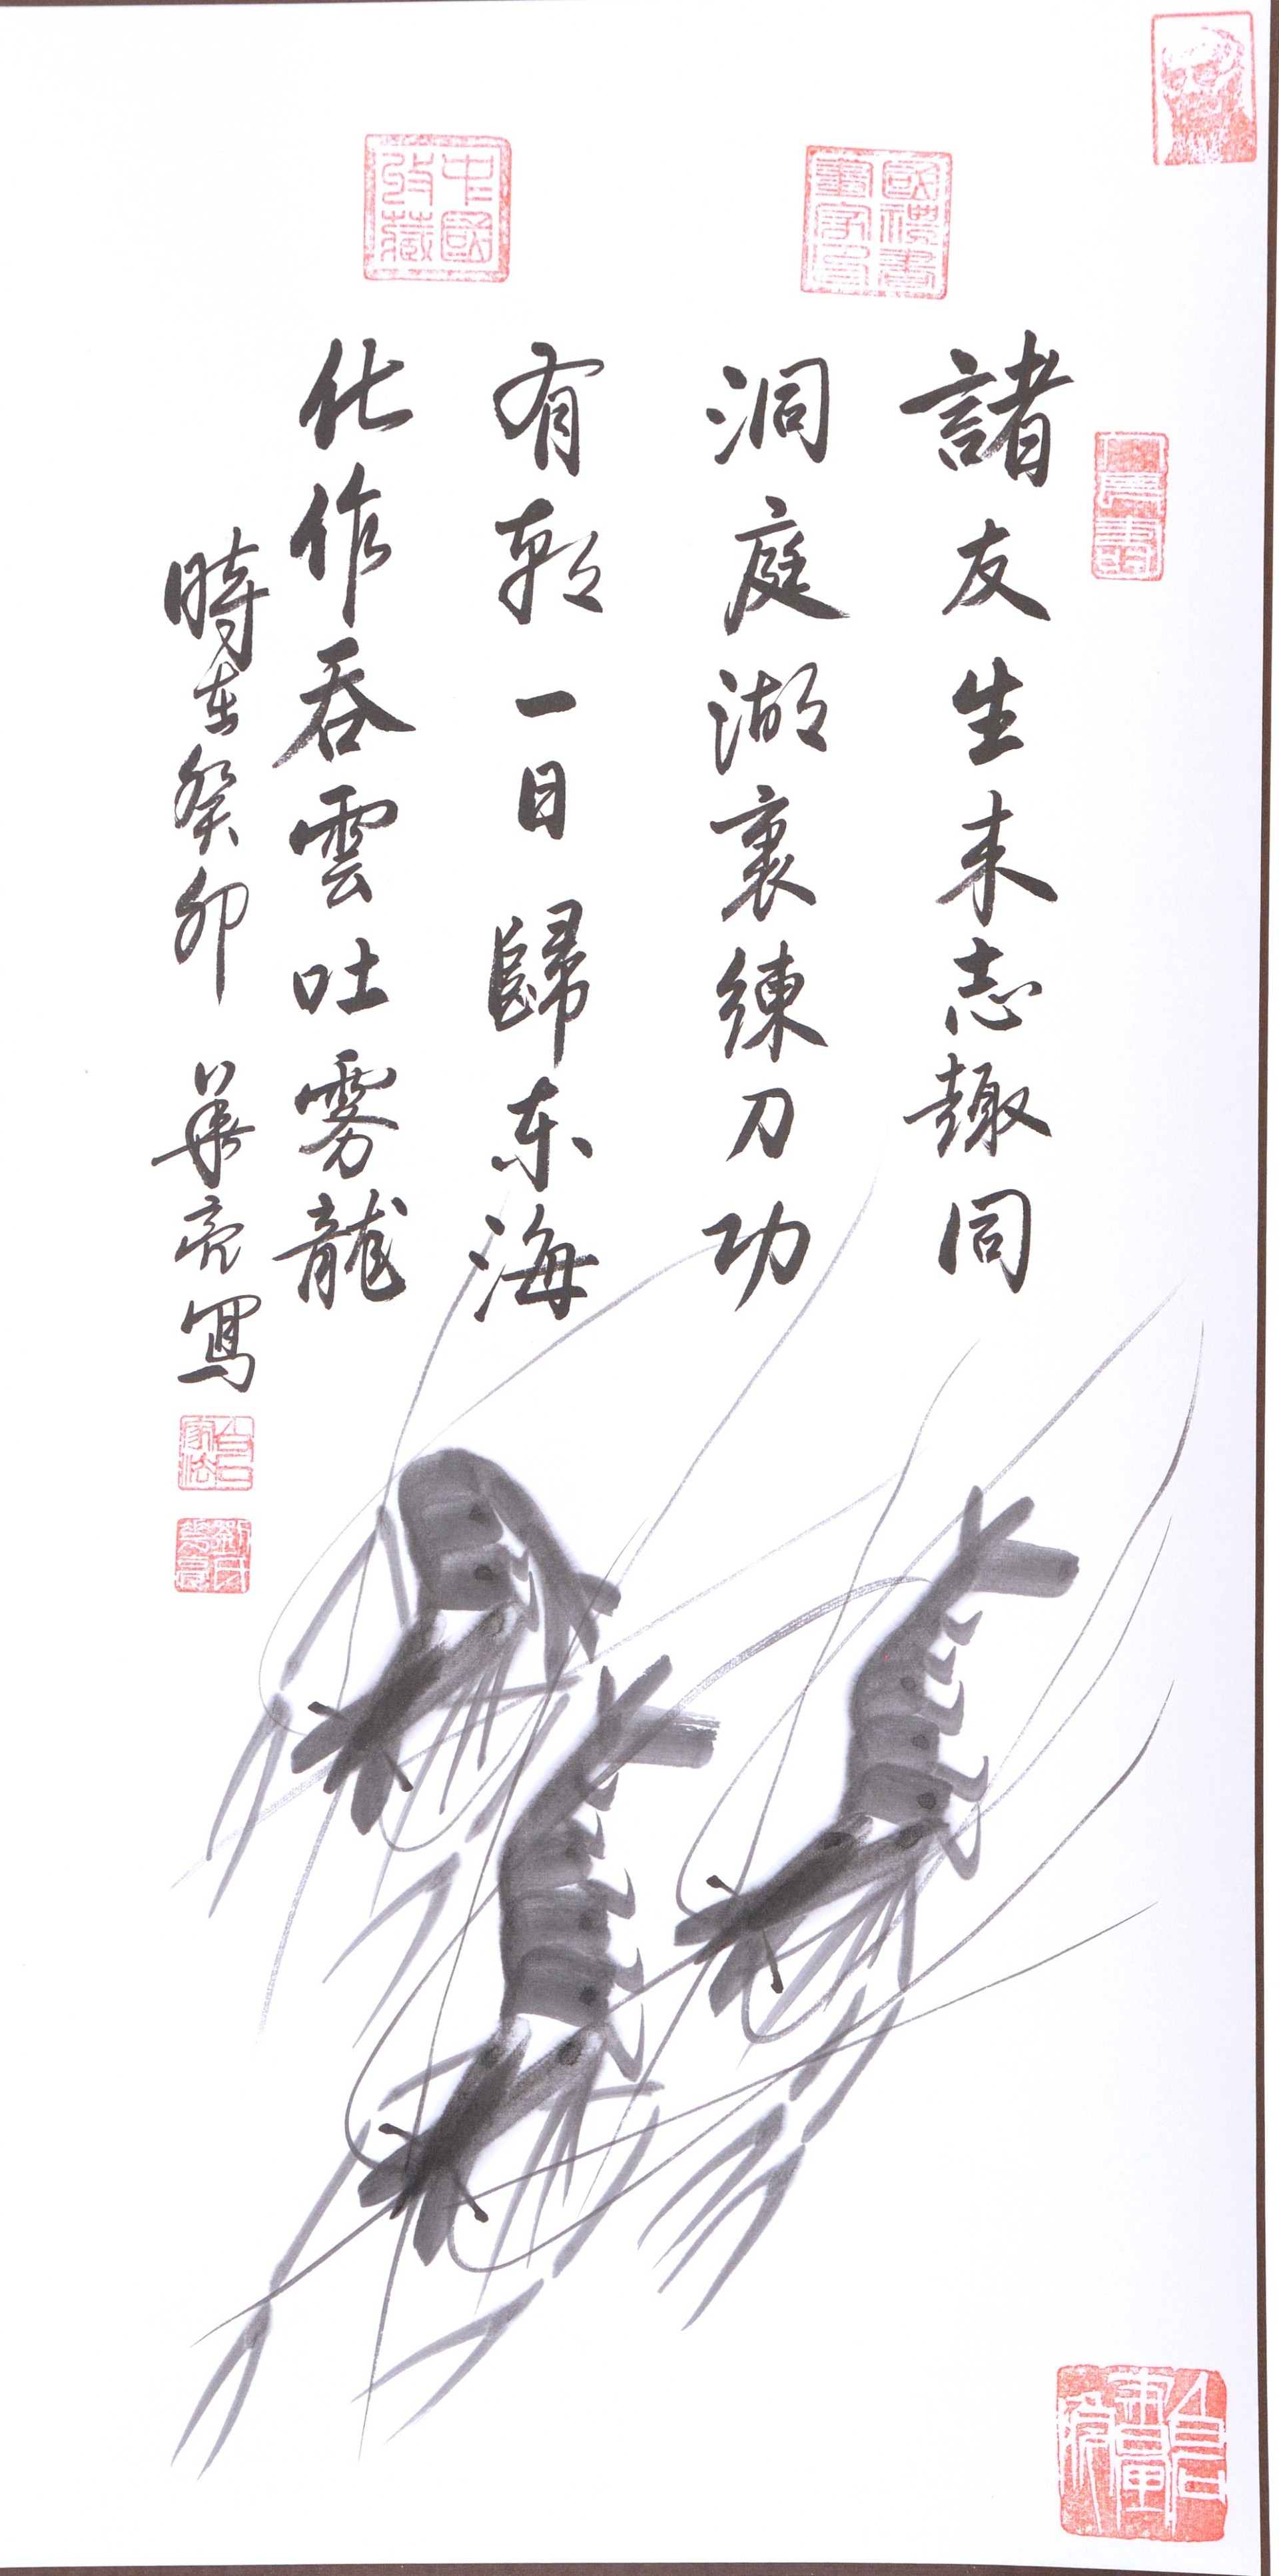 中國收藏
諸友生来志趣同
洞庭湖裏練刀功
有朝一日歸东海
化作吞雲吐雾龍
時在癸卯 華亮寫
劉氏華亮